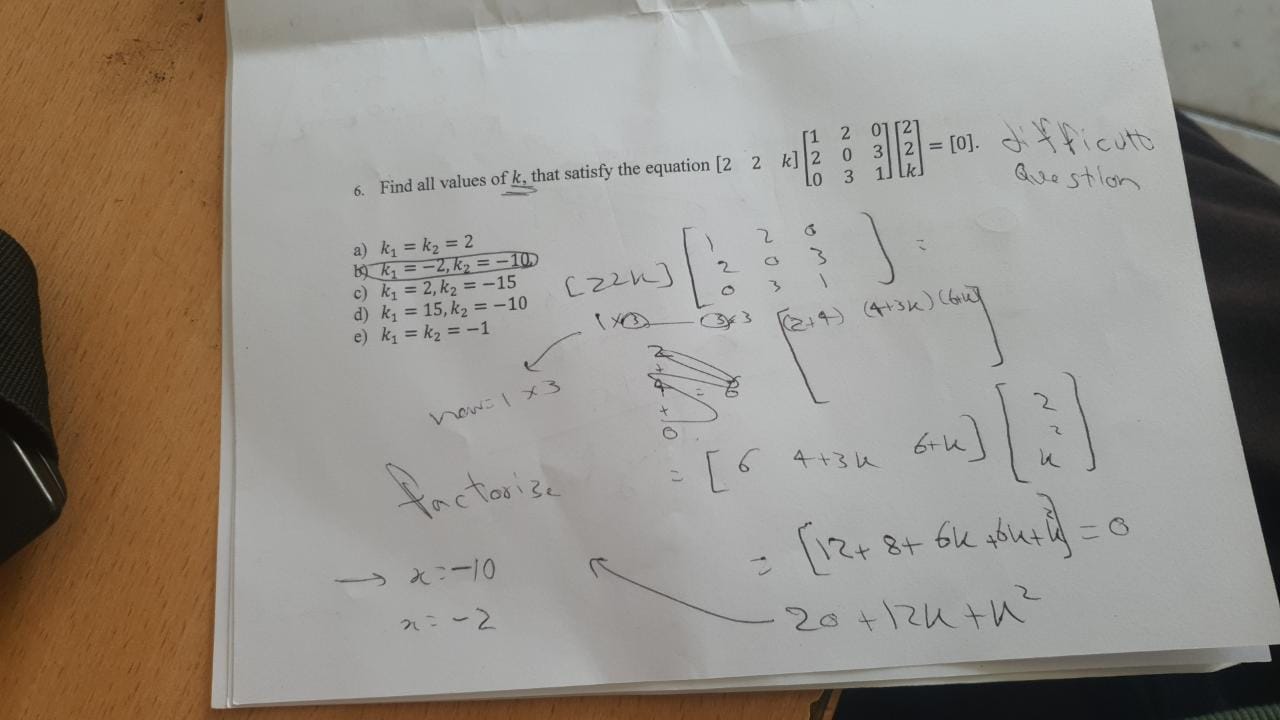 6. Find all values of k, that satisfy the equation [2 2 k] [1 2 0; 2 0 3; 0 3 1] [2; 2; k] = [0].
difficult
Question
a) k₁ = k₂ = 2
b) k₁ = −2, k₂ = −10
c) k₁ = 2, k₂ = −15
d) k₁ = 15, k₂ = −10
e) k₁ = k₂ = −1
[2 2 k] [1 2 0; 2 0 3; 0 3 1] =
1×3 3×3 [(2+4) (4+3k) (6+k)]
2
+
4 = 6
+
0
new=1×3
= [6 4+3k 6+k] [2; 2; k]
factorise
= [12+8+6k+6k+k²] = 0
20+12k+k²
→ x=-10
x=-2